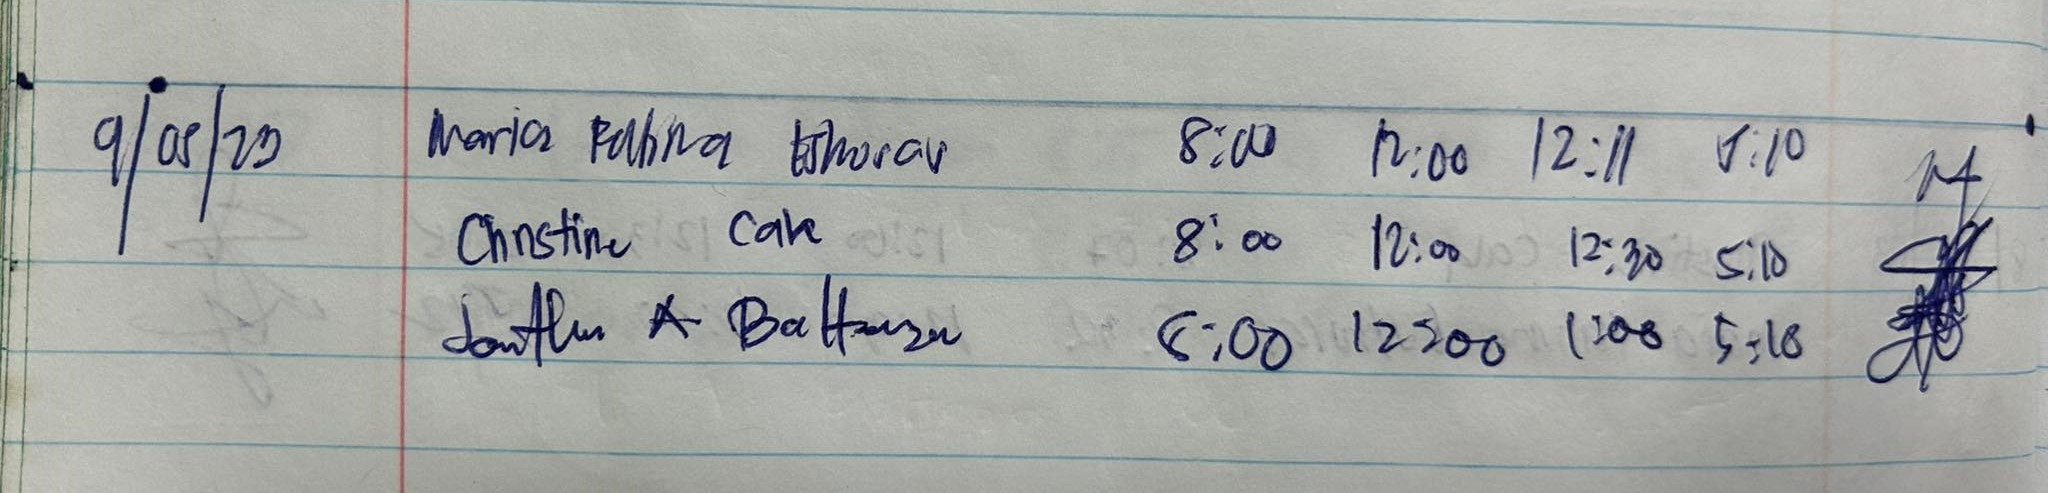 9/05/23 Maria 8:00 12:00 12:11 5:10
Christine Cale 8:00 12:00 12:30 5:10
A Baltazar 8:00 12:00 1:00 5:10